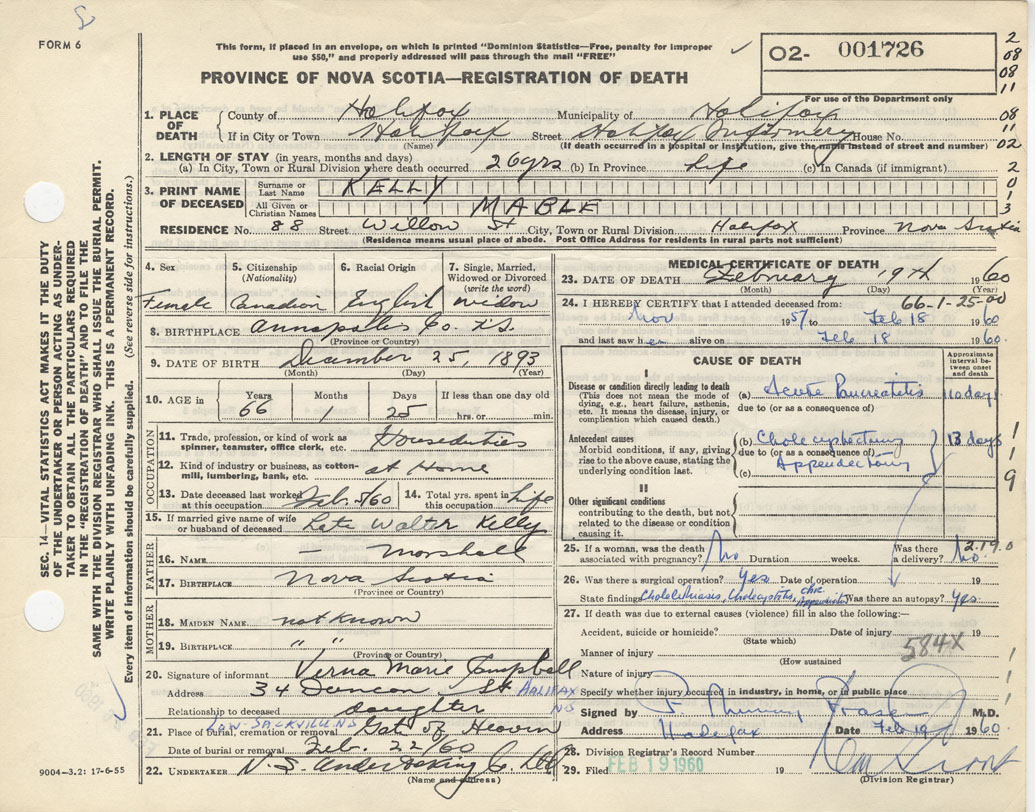 FORM 6
This form, if placed in an envelope, on which is printed "Dominion Statistics—Free, penalty for improper
use $50," and properly addressed will pass through the mail "FREE"
PROVINCE OF NOVA SCOTIA—REGISTRATION OF DEATH
02- 001726
For use of the Department only
2
08
08
11
08
11
02
2
0
1
3
1. PLACE OF DEATH
County of Halifax Municipality of Halifax
If in City or Town Halifax Street Halifax Infirmary House No.
(Name) (If death occurred in a hospital or institution, give the name instead of street and number)
2. LENGTH OF STAY (in years, months and days)
(a) In City, Town or Rural Division where death occurred 26 yrs (b) In Province Life (c) In Canada (if immigrant)
3. PRINT NAME OF DECEASED
Surname or Last Name KELLY
All Given or Christian Names MABLE
RESIDENCE No. 88 Street Willow St City, Town or Rural Division Halifax Province Nova Scotia
(Residence means usual place of abode. Post Office Address for residents in rural parts not sufficient)
SEC. 14—VITAL STATISTICS ACT MAKES IT THE DUTY
OF THE UNDERTAKER OR PERSON ACTING AS UNDER-
TAKER TO OBTAIN ALL THE PARTICULARS REQUIRED
IN THE "REGISTRATION OF DEATH" AND TO FILE THE
SAME WITH THE DIVISION REGISTRAR WHO SHALL ISSUE THE BURIAL PERMIT.
WRITE PLAINLY WITH UNFADING INK. THIS IS A PERMANENT RECORD.
Every item of information should be carefully supplied. (See reverse side for instructions.)
4. Sex
Female
5. Citizenship
(Nationality)
Canadian
6. Racial Origin
English
7. Single, Married,
Widowed or Divorced
(write the word)
Widow
8. BIRTHPLACE Annapolis Co. N.S.
(Province or Country)
9. DATE OF BIRTH December 25, 1893
(Month) (Day) (Year)
10. AGE in
Years Months Days If less than one day old
66 1 25 hrs. or min.
OCCUPATION
11. Trade, profession, or kind of work as
spinner, teamster, office clerk, etc. Houseduties
12. Kind of industry or business, as cotton-
mill, lumbering, bank, etc. at Home
13. Date deceased last worked
at this occupation Feb. 5/60
14. Total yrs. spent in
this occupation Life
15. If married give name of wife
or husband of deceased Late Walter Kelly
FATHER
16. NAME — Marshall
17. BIRTHPLACE Nova Scotia
(Province or Country)
MOTHER
18. MAIDEN NAME not Known
19. BIRTHPLACE " "
(Province or Country)
20. Signature of informant Verna Marie Campbell
Address 34 Duncan St HALIFAX NS
Relationship to deceased daughter
LOW-SACKVILLE NS
21. Place of burial, cremation or removal Gate of Heaven
Date of burial or removal Feb. 22/60
22. UNDERTAKER N.S. Undertaking Co. Ltd
(Name and address)
9004-3.2: 17-6-55
MEDICAL CERTIFICATE OF DEATH
23. DATE OF DEATH February 19th 1960
(Month) (Day) (Year)
66-1-25-00
24. I HEREBY CERTIFY that I attended deceased from:
Nov 1957 to Feb 18 1960
and last saw her alive on Feb 18 1960.
CAUSE OF DEATH
Approximate
interval be-
tween onset
and death
I
Disease or condition directly leading to death
(This does not mean the mode of
dying, e.g., heart failure, asthenia,
etc. It means the disease, injury, or
complication which caused death.)
(a) Acute Pancreatitis 10 days
due to (or as a consequence of)
Antecedent causes
Morbid conditions, if any, giving
rise to the above cause, stating the
underlying condition last.
(b) Cholecystectomy 13 days
due to (or as a consequence of)
Appendectomy
(c)
1
1
9
II
Other significant conditions
contributing to the death, but not
related to the disease or condition
causing it.
25. If a woman, was the death
associated with pregnancy? No Duration weeks. Was there
a delivery? No
2.19.0
26. Was there a surgical operation? Yes Date of operation 19
State findings Cholelithiasis, Cholecystitis, chr. Appendicitis Was there an autopsy? Yes.
27. If death was due to external causes (violence) fill in also the following:—
Accident, suicide or homicide? Date of injury 19
(State which)
584X
Manner of injury
(How sustained
Nature of injury
Specify whether injury occurred in industry, in home, or in public place
Signed by M.D.
Address Halifax Date Feb 19 1960.
28. Division Registrar's Record Number
29. Filed FEB 19 1960 19
(Division Registrar)